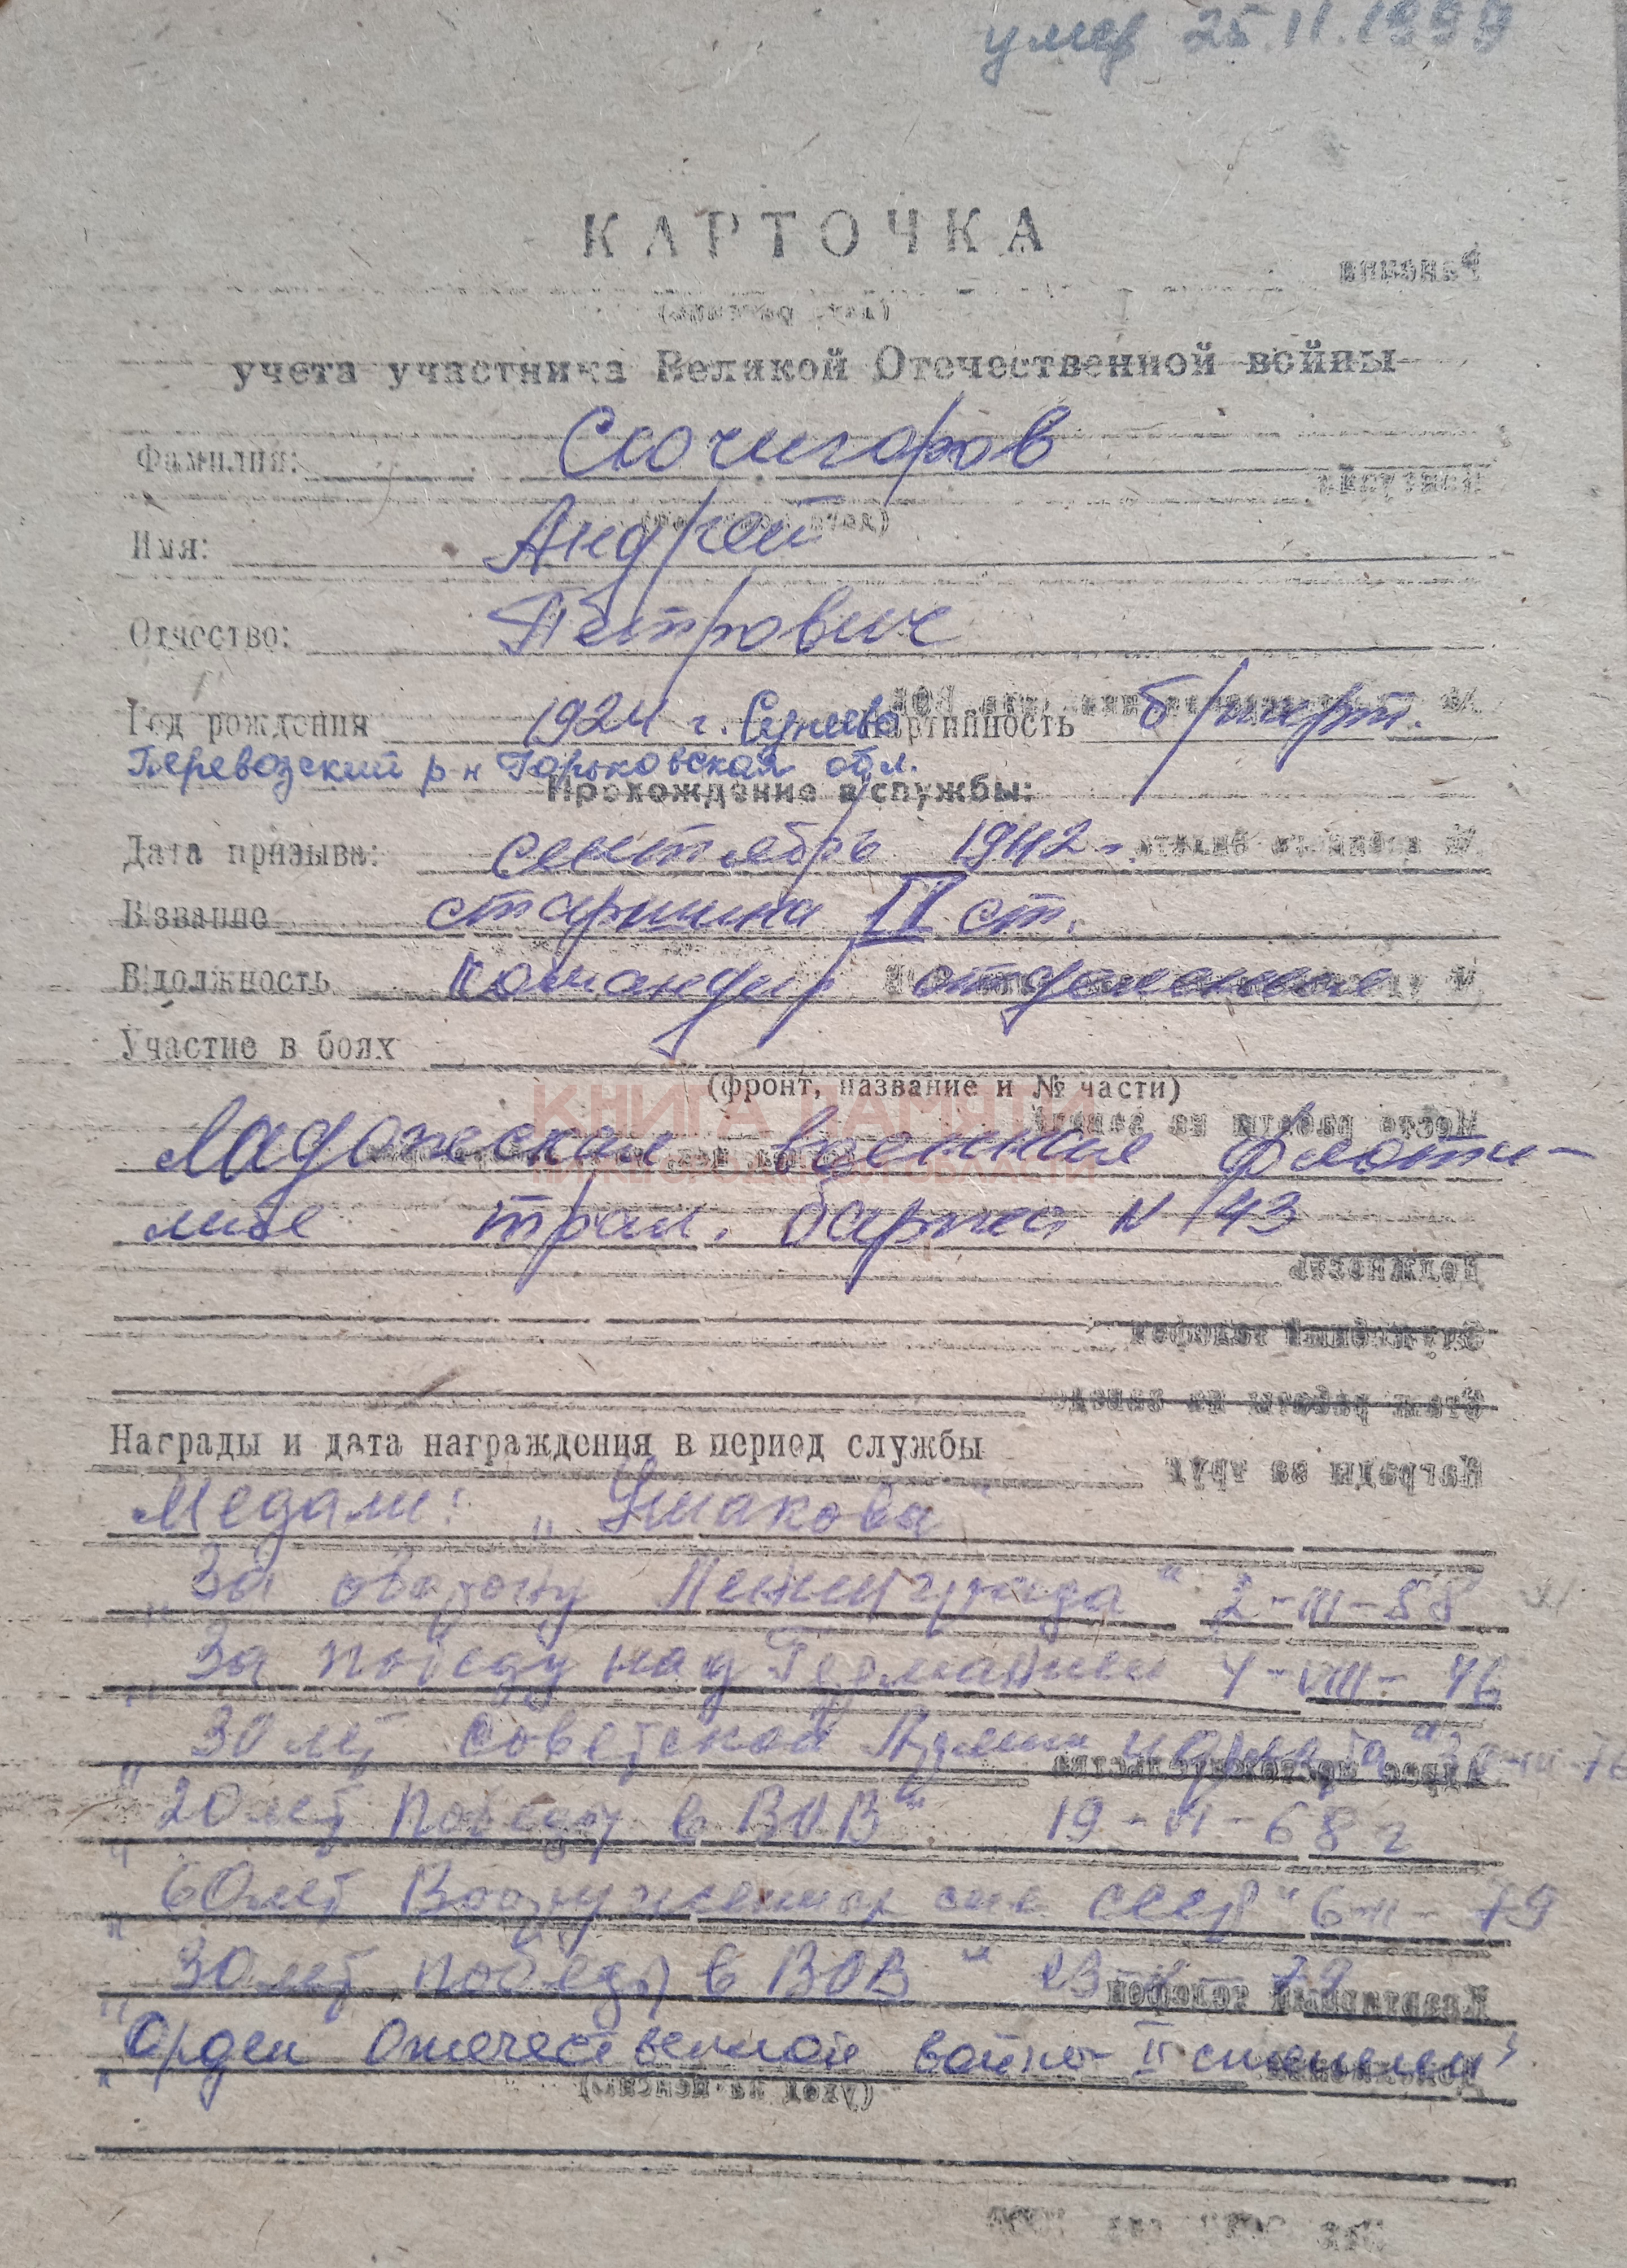 умер 25.11.1999
КАРТОЧКА
учета участника Великой Отечественной войны
Фамилия: Скочигоров
Имя: Андрей
Отчество: Петрович
Год рождения 1924 г. партийность б/парт.
Перевозский р-н Горьковская обл.
Прохождение службы:
Дата призыва: сентябрь 1942 г.
В звание старшина II ст.
В должность командир отделения
Участие в боях
(фронт, название и № части)
КНИГА ПАМЯТИ
НИЖЕГОРОДСКОЙ ОБЛАСТИ
Ладожская военная флоти-
лия трал. баржа N 143
Награды и дата награждения в период службы
Медали: „Ушакова"
„За оборону Ленинграда" 2-III-58
„За победу над Германией 4-VIII-46
„30 лет Советской Армии и флота"
„20 лет победы в ВОВ". 19-VI-68 г
„60 лет Вооруженных сил СССР" 6-II-79
„30 лет победы в ВОВ"
„Орден Отечественной войны II степени"